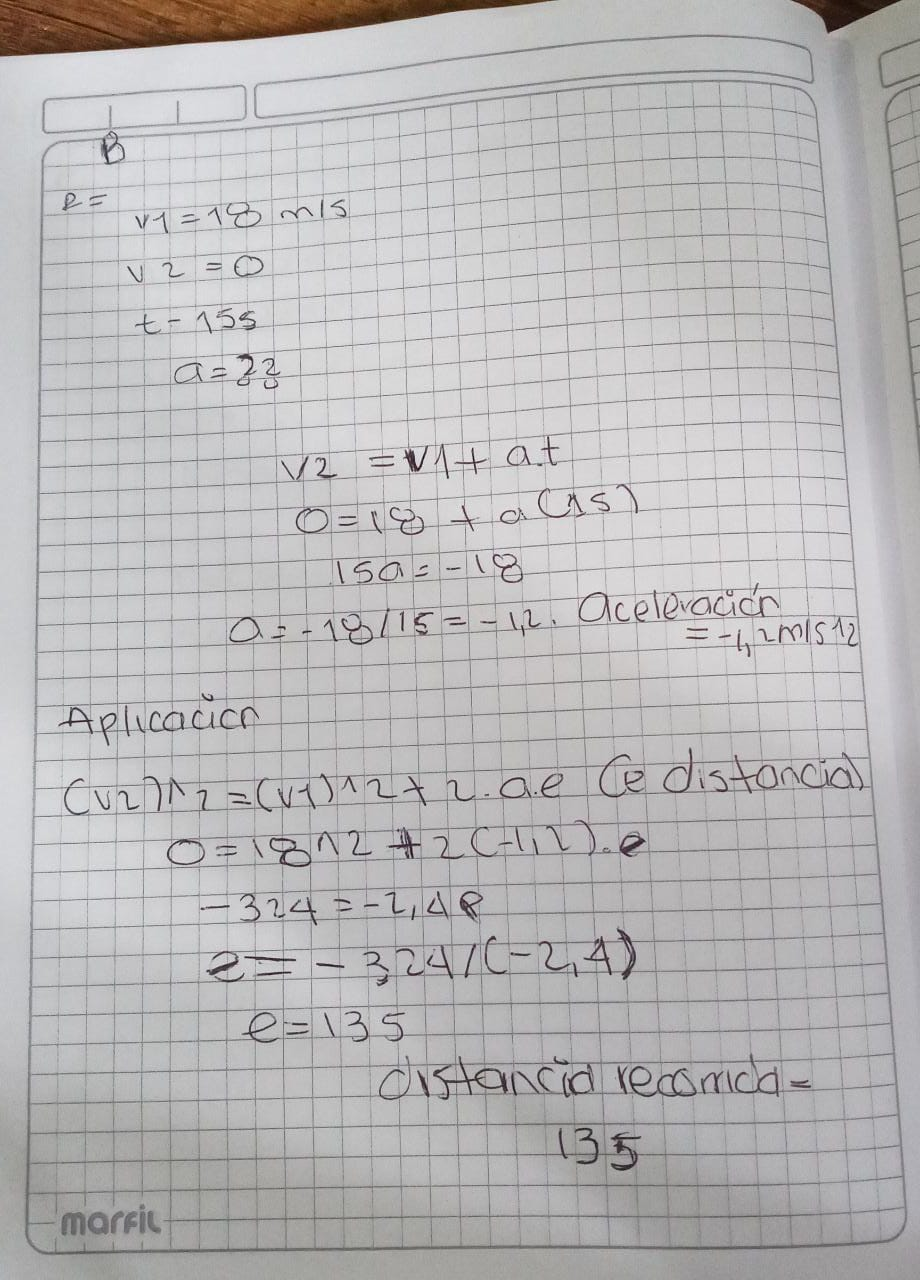 B
e=
v1=18 m/s
v2 =0
t-15s
a=??
v2 =v1+ a.t
0=18 + a(15)
15a=-18
a=-18/15=-1,2. Aceleración
=-1,2m/s^2
Aplicación
(v2)^2=(v1)^2+2.a.e (e distancia)
0=18^2+2(-1,2).e
-324=-2,4e
e=-324/(-2,4)
e=135
distancia recorrida=
135
marfil